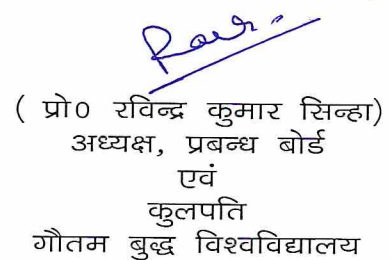 ( प्रो0 रविन्द्र कुमार सिन्हा)
अध्यक्ष, प्रबन्ध बोर्ड
एवं
कुलपति
गौतम बुद्ध विश्वविद्यालय